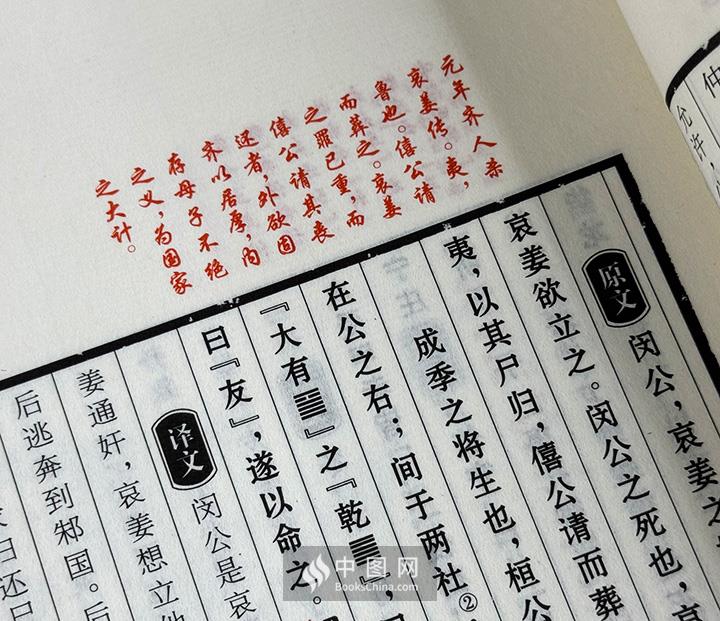 仲
允许,
元年齐人杀
哀姜传。夷,
鲁也。僖公请
而葬之。哀姜
之罪已重,而
僖公请其丧
还者,外欲固
齐以居厚,内
存母子不绝
之义,为国家
之大计。
原文
闵公,哀姜之
哀姜欲立之。闵公之死也,哀
夷,以其尸归,僖公请而葬
成季之将生也,桓公
在公之右;间于两社②
『大有䷍』之『乾䷀』,
曰『友』,遂以命之。
译文
闵公是哀
姜通奸,哀姜想立
后逃奔到邾国。后
中图网
BooksChina.com